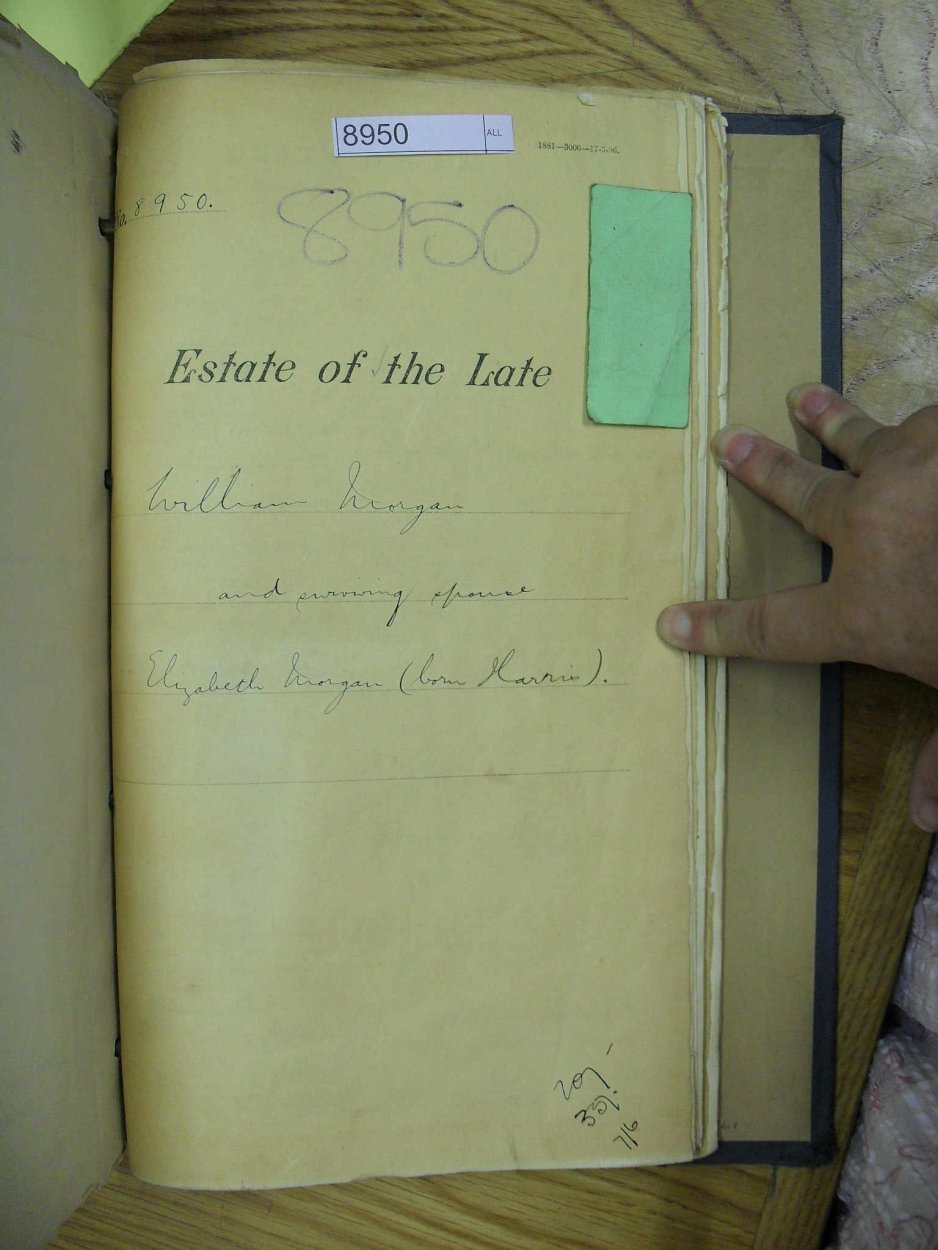 8950 ALL
1881—3000—17-5-'06.
No. 8950.
8950
Estate of the Late
William Morgan
and surviving spouse
Elizabeth Morgan (born Harris).
20/-
35/-
7/6